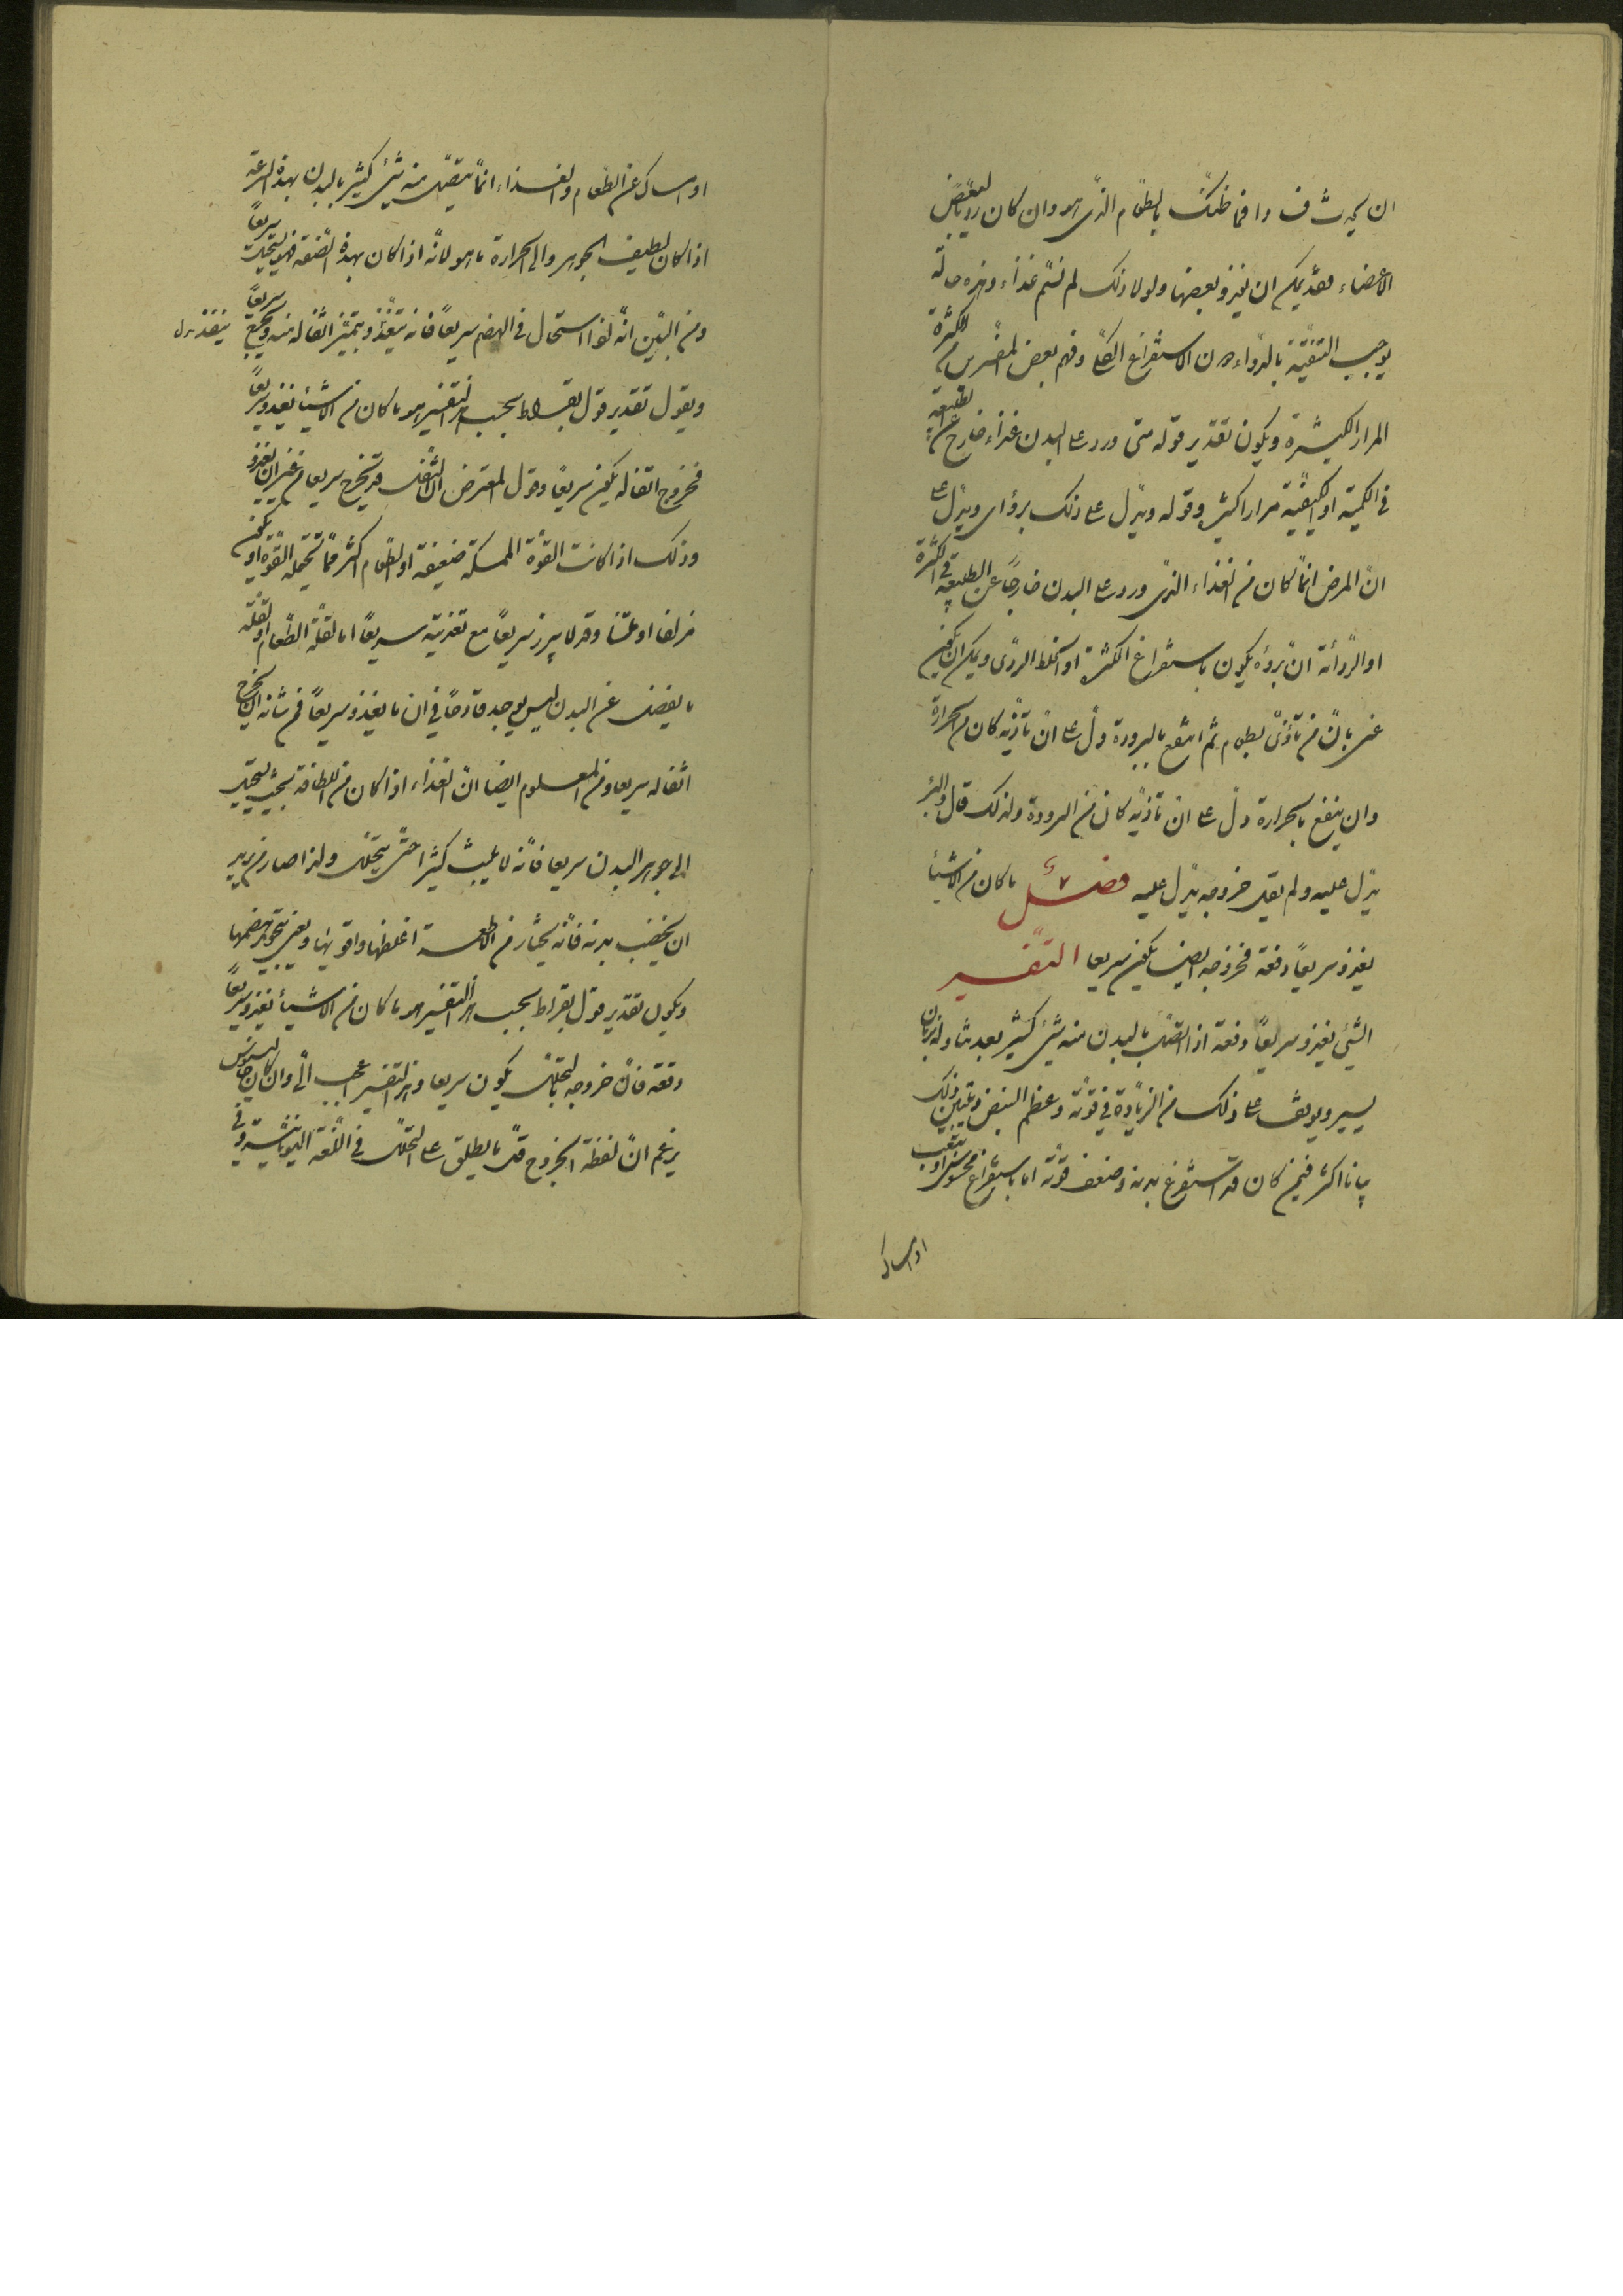 ان يحدث فسادا فما ظنك بالطعام الذى هو وان كان رديا لبعض
الاعضاء فقد يمكن ان يغذو بعضها ولولا ذلك لم نسم غذاء وهذه حالة
يوجب التنقية بالدواء دون الاستفراغ الكلى وفهم بعض المفسرين من الكثرة
المرار الكثيرة ويكون تقدير قوله متى ورد على البدن غذاء خارج عن الطبيعة
فى الكمية او الكيفية مرارا كثيرة وقوله ويدل على ذلك برؤه اى ويدل على
ان المرض انما كان من الغذاء الذى ورد على البدن خارجا عن الطبيعة فى الكثرة
او الردائة ان برؤه يكون باستفراغ الكثرة او الخلط الردى ويمكن ان يكون
عنى بان من تأذى بطعام ثم انتفع بالبرودة دل على ان تأذيه كان من الحرارة
وان ينفع بالحرارة دل على ان تاذيه كان من البرودة ولذلك قال والبرء
يدل عليه ولم يقل خروجه يدل عليه فصل ما كان من الاشياء
يغذو سريعا دفعة فخروجه ايضا يكون سريعا التفسير
الشئ يغذو سريعا دفعة اذا اتصل بالبدن منه شئ كثير بعد تناوله بزمان
يسير ويوقف على ذلك من الزيادة فى قوته وعظم النبض ويتبين ذلك
بيانا اكثر فيمن كان قد استفرغ بدنه وضعف قوته اما باستفراغ محسوس او بتعب
او امساك
او امساك عن الطعام والغذاء انما يتصل منه شئ كثير بالبدن بهذه السرعة
اذا كان لطيف الجوهر والى الحرارة ما هو لانه اذا كان بهذه الصفة فهو يستحيل سريعا
ومن البين انه اذا استحال فى الهضم سريعا فانه يتغذ ويتميز اثفاله منه ويخرج سريعا ينفذ بدل
ويقول تقدير قول بقراط بحسب هذا التفسير هو ما كان من الاشياء يغذو سريعا
فخروج اثفاله يكون سريعا وقول المعترض ان الثفل قد يخرج سريعا من غير ان يغذو
وذلك اذا كانت القوة الممسكة ضعيفة او الطعام اكثر مما تحتمله القوة او يكون
مزلقا او ملينا وقد لا يبرز سريعا مع تغذيته سريعا اما لقلة الطعام او لقلة
ما يفضل عن البدن ليس يوجد قادحا فى ان ما يغذو سريعا فمن شانه ان يخرج
اثفاله سريعا ومن المعلوم ايضا ان الغذاء اذا كان من اللطافة بحيث يستحيل
الى جوهر البدن سريعا فانه لا يلبث كثيرا حتى يتحلل ولذا صار من يريد
ان يخصب بدنه فانه يختار من الاطعمة اغلظها واقويها ويعنى بتجويد هضمها
ويكون تقدير قول بقراط بحسب هذا التفسير هو ما كان من الاشياء يغذو سريعا
دفعة فان خروجه بالتحلل يكون سريعا وهذا التفسير اعجب الى وان كان جالينوس
يزعم ان لفظة الخروج قل ما يطلق على التحلل فى اللغة اليونانية وفى